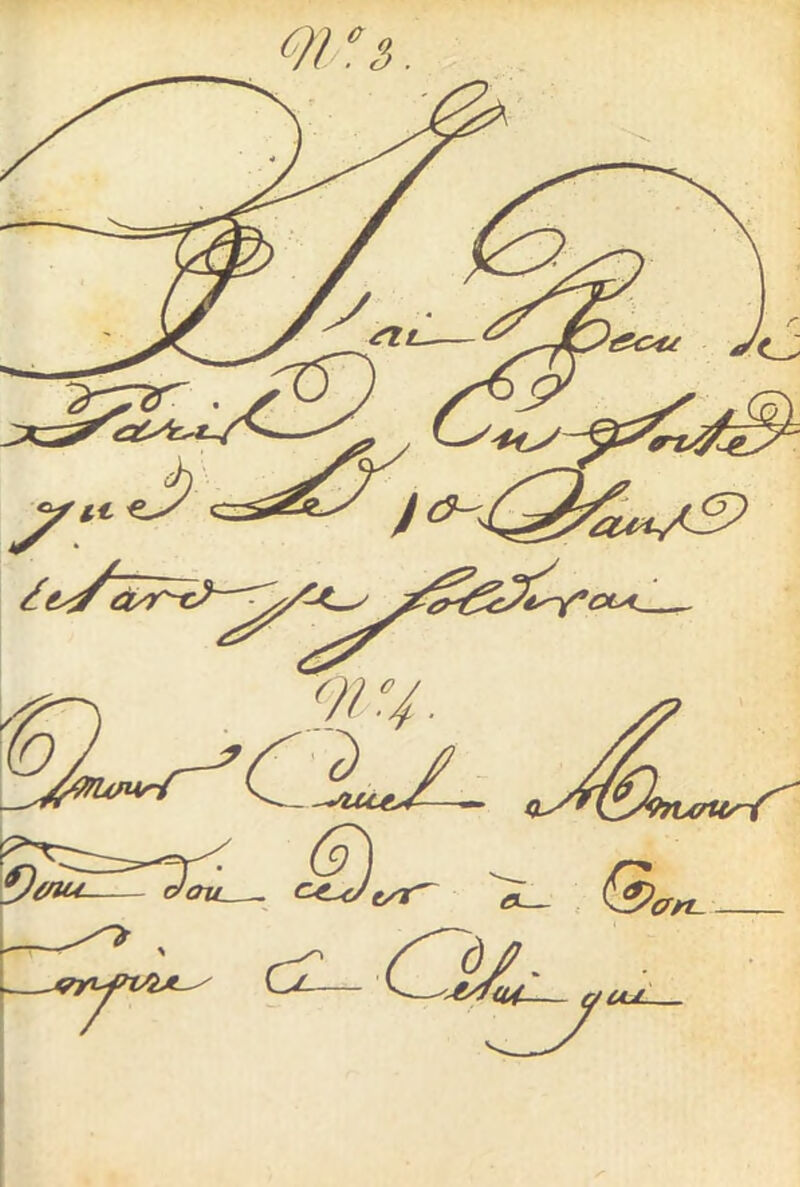 N.º 3.
J'ai Recu de
Paris En sorte
que Le 10 Sans
retard je solderai
N.º 4.
Amour Cruel Amour
Tout doit ceder à Ton
Empire Et Celui qui